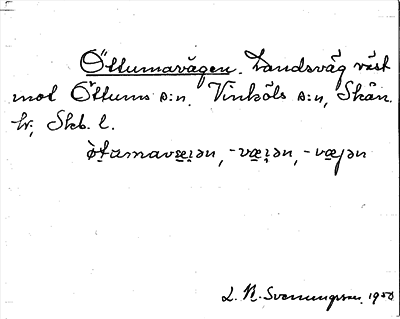 Öttumavägen. Landsväg väst
mot Öttums s:n, Vinköls s:n, Skån.
hr, Skb. l.
òt̯amavæi̯ən, -væi̯ən, -væjən
L. R. Svenungsson. 1950